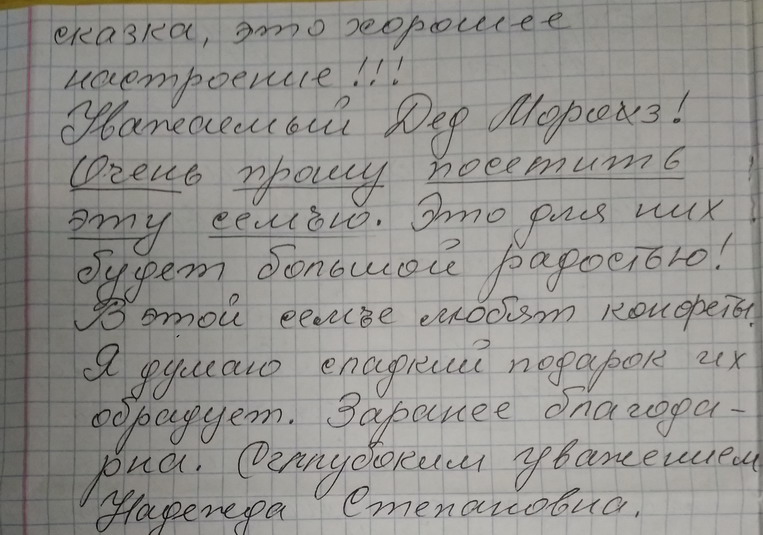 сказка, это хорошее
настроение!!!
Уважаемый Дед Мороз!
Очень прошу посетить
эту семью. Это для них
будет большой радостью!
В этой семье любят конфеты.
Я думаю сладкий подарок их
обрадует. Заранее благода-
рна. С глубоким уважением
Надежда Степановна.